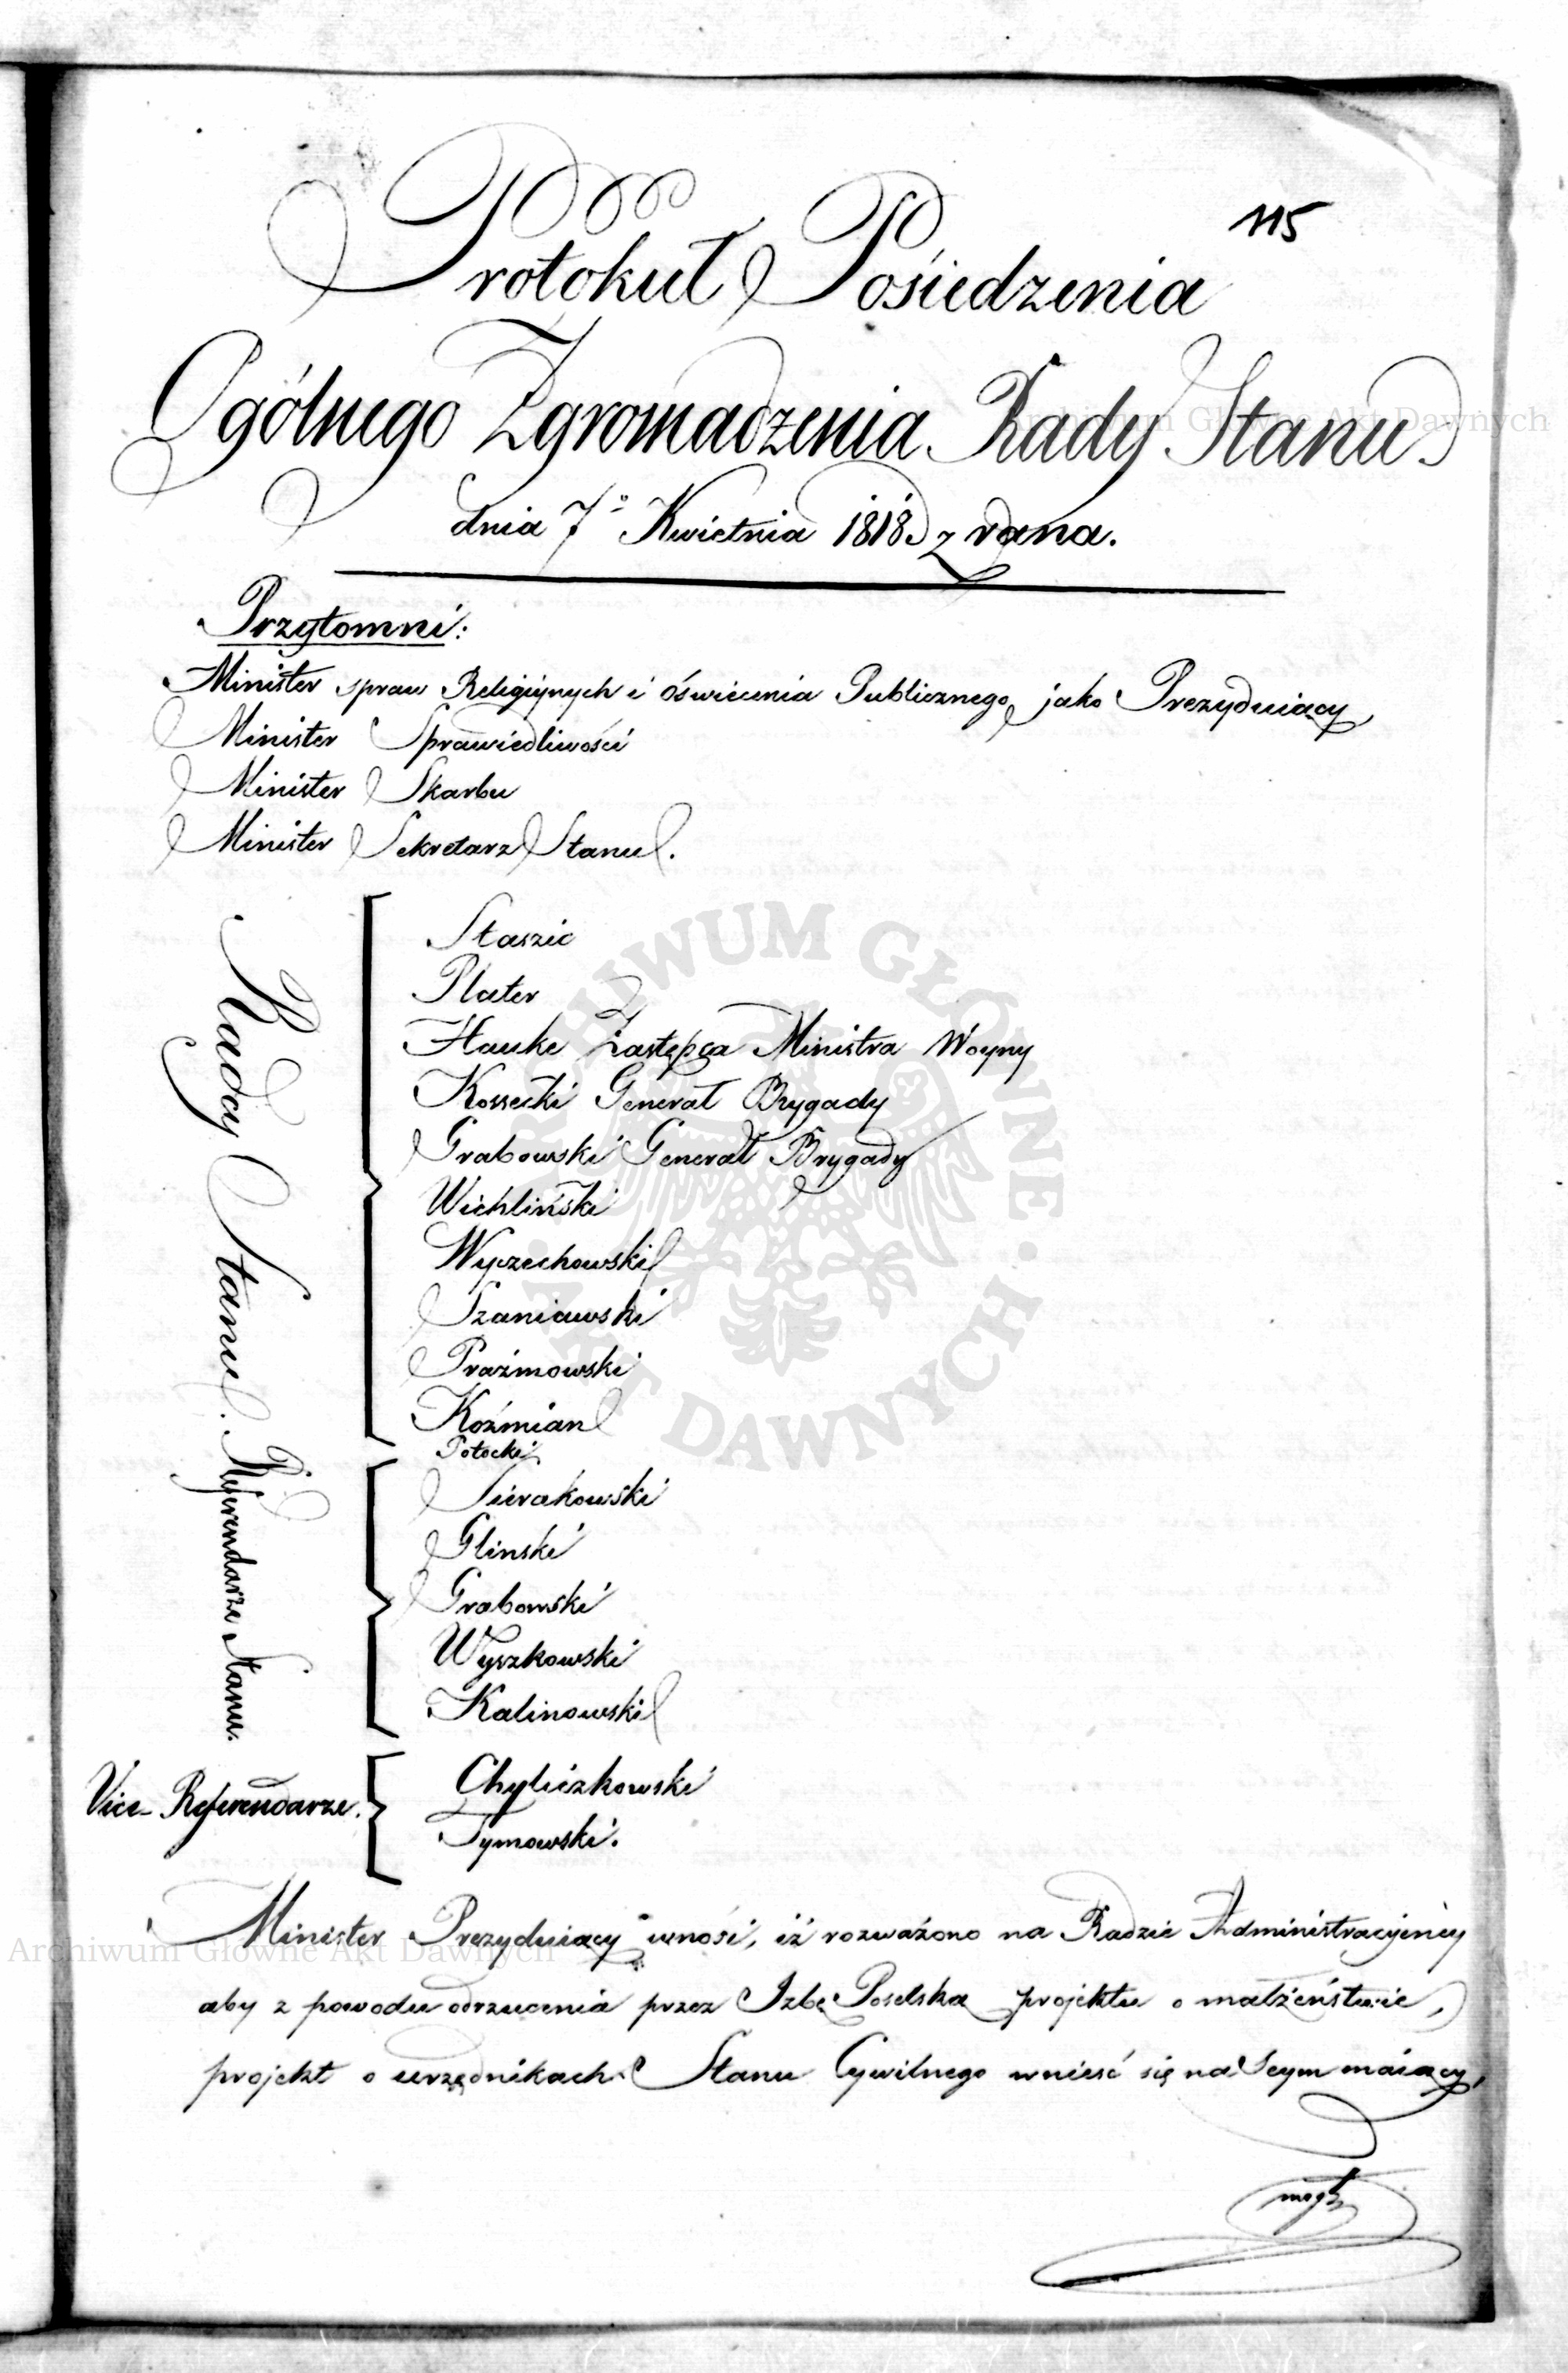 115
Protokuł Posiedzenia
Ogólnego Zgromadzenia Rady Stanu
dnia 7º Kwietnia 1818 z rana.
Przytomni:
Minister spraw Religijnych i Oświecenia Publicznego, jako Prezyduiący,
Minister Sprawiedliwości
Minister Skarbu
Minister Sekretarz Stanu.
Radcy Stanu.
Staszic
Plater
Hauke Zastępca Ministra Woyny
Kossecki Generał Brygady
Grabowski Generał Brygady
Wichliński
Wyczechowski
Szaniawski
Prażmowski
Koźmian
Potocki
Referendarze Stanu.
Sierakowski
Glinski
Grabowski
Wyszkowski
Kalinowski
Vice-Referendarze.
Chyliczkowski
Tymowski.
Minister Prezyduiący wnosi, iż rozważono na Radzie Administracyiney
aby z powodu odrzucenia przez Izbę Poselską projektu o małżeństwie,
projekt o urzędnikach Stanu Cywilnego wnieść się na Seym maiący,
mógł
Archiwum Główne Akt Dawnych
ARCHIWUM GŁÓWNE · AKT DAWNYCH ·
Archiwum Główne Akt Dawnych